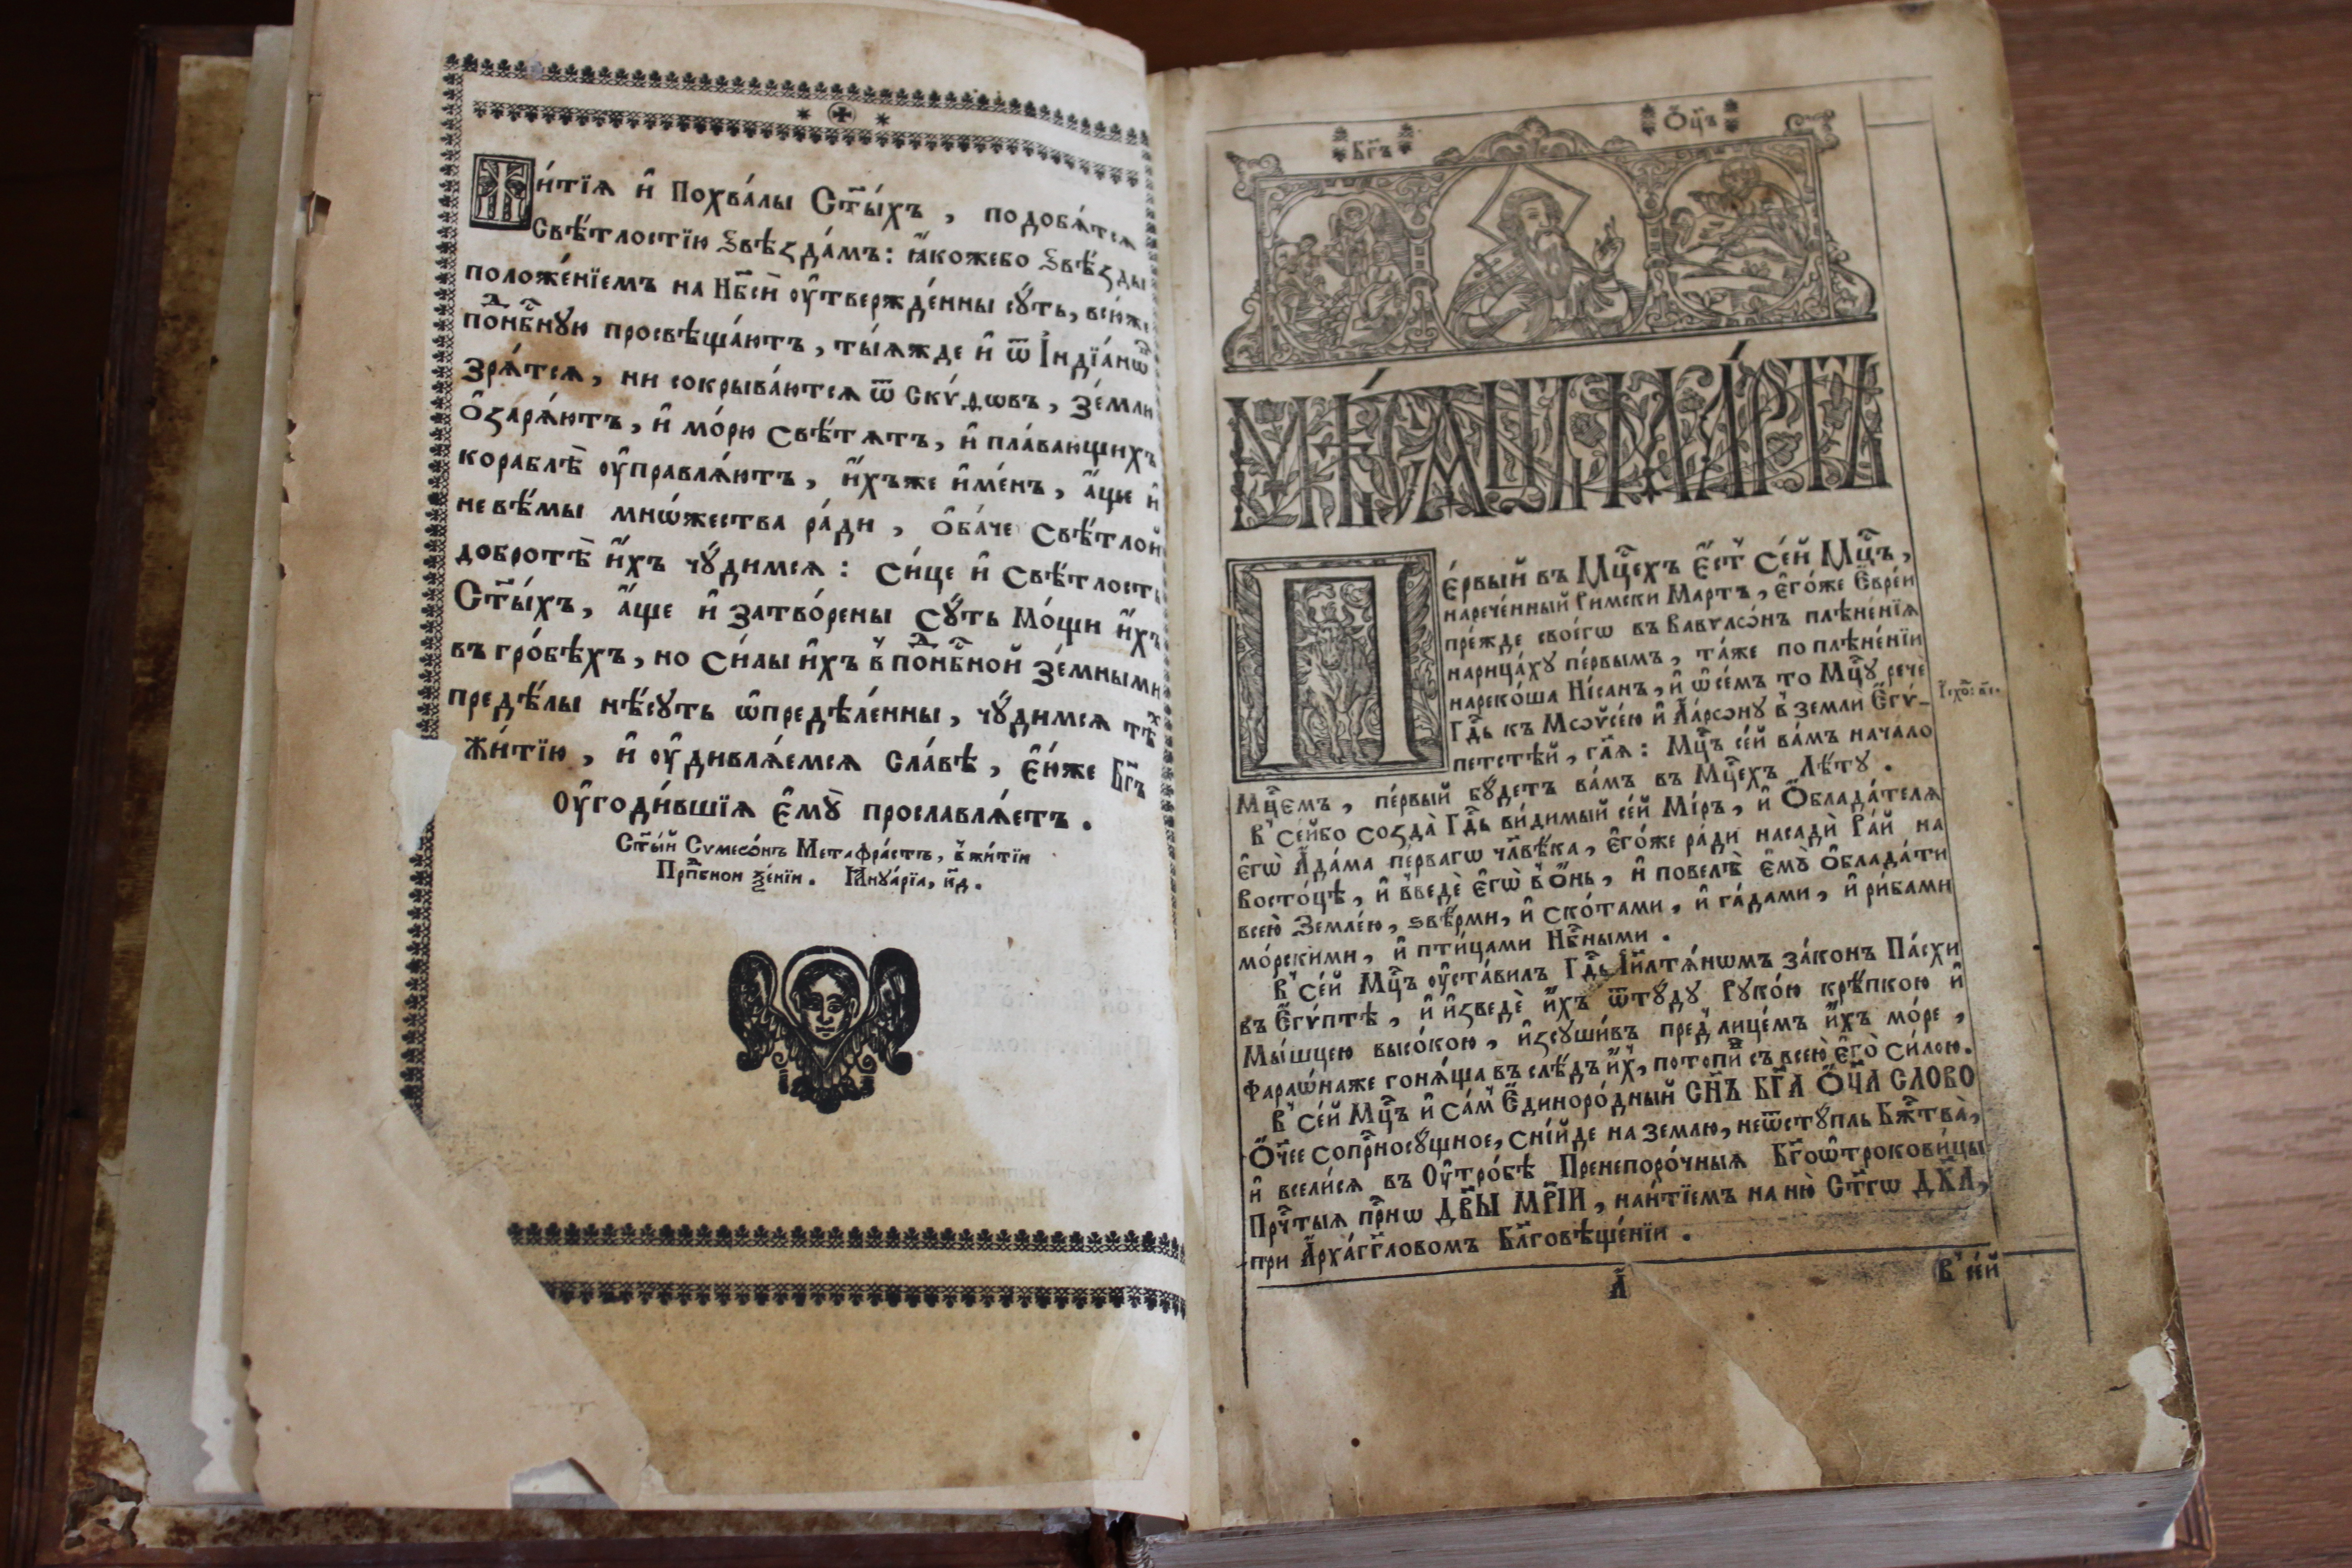 Жи́тїѧ и҆ Похва́лы Ст҃ы́хъ , подобѧ́тсѧ
Свѣ́тлостїю Ѕвѣѕда́мъ : ꙗ҆́коже бо Ѕвѣ́ѕды
положе́нїемъ на Нб҃сѝ ᲂу҆твержде́нны сꙋ́ть, всю́же
поⷣнбⷭ҇нꙋю просвѣща́ютъ , ты́ѧжде и҆ ѿ І҆ндїа́нѡⷡ
Зрѧ́тсѧ, ни сокрыва́ютсѧ ѿ Скѵ́дѡвъ , Зе́млю
Ѻ҆ѕарѧ́ютъ , и҆ мо́рю Свѣ́тѧтъ , и҆ пла́вающихъ
кораблѣ̀ ᲂу҆правлѧ́ютъ , и҆́хъже и҆ме́нъ , а҆́ще и҆
не вѣ́мы мно́жества ра́ди , Ѻ҆ба́че Свѣ́тлой
добротѣ̀ и҆́хъ чꙋ́димсѧ : Си́це и҆ Свѣ́тлость
Ст҃ы́хъ , а҆́ще и҆ затво́рены Сꙋ́ть Мо́щи и҆́хъ
въ гро́бѣхъ , но Си́лы и҆́хъ в̾ поⷣнбⷭ҇ной зе́мными
предѣ́лы нѣ́сꙋть ѡ҆предѣле́нны , чꙋ́димсѧ тѣ́ⷯ
Жи́тїю , и҆ ᲂу҆дивлѧ́емсѧ Сла́вѣ , Е҆́юже Бг҃ъ
Оу҆годи́вшїѧ Е҆мꙋ̀ прославлѧ́етъ .
Ст҃ы́й Сѵмеѡ́нъ Метафра́стъ , в̾ жи́тїи
Прпⷣбнои Ѯе́нїи . Іа҆ннꙋа́рїа , к҃д .
Бг҃ъ
Ѻ҆ц҃ъ
МѢ́СѦЦЪ МА́РТЪ
Пе́рвый въ Мцⷭ҇ехъ Е҆́ст̾ Се́й Мцⷭ҇ъ ,
нарече́нный Ри́мски Мартъ , Е҆го́же Е҆вре́и
пре́жде своегѡ̀ въ Вавѵлѡ́нъ плѣне́нїѧ
нарица́хꙋ пе́рвымъ , та́же по плѣне́нїи
нареко́ша Ні́санъ , и҆ ѡ҆ се́мъ то Мцⷭ҇ꙋ речѐ
Гдⷭ҇ь къ Мѡѵсе́ю и҆ А҆арѡ́нꙋ в̾ землѝ Е҆гѵ́-
петстѣй , гл҃ѧ : Мцⷭ҇ъ се́й ва́мъ нача́ло
Мцⷭ҇емъ , пе́рвый бꙋ́детъ ва́мъ въ Мцⷭ҇ехъ Лѣ́тꙋ .
В̾ Се́й бо Соѕда̀ Гдⷭ҇ь ви́димый се́й Мі́ръ , и҆ Ѻ҆блада́телѧ
Е҆гѡ̀ А҆да́ма пе́рвагѡ чл҃вѣ́ка , Е҆го́же ра́ди насадѝ Ра́й на
Восто́цѣ , и҆ введѐ Е҆гѡ̀ в̾ О҆́нь , и҆ повелѣ̀ Е҆мꙋ̀ Ѻ҆блада́ти
всею̀ Земле́ю , ѕвѣ́рми , и҆ Ско́тами , и҆ га́дами , и҆ ри́бами
мо́рскими , и҆ пти́цами Нбⷭ҇ными .
В̾ се́й Мцⷭ҇ъ ᲂу҆ста́вилъ Гдⷭ҇ь І҆и҃лтѧ́нѡмъ за́конъ Па́схи
въ Е҆гѵ́птѣ , и҆ и҆ѕведѐ и҆́хъ ѿтꙋ́дꙋ Рꙋко́ю крѣ́пкою и҆
Мы́шцею высо́кою , и҆ѕсꙋши́въ пред̾ лице́мъ и҆́хъ мо́ре ,
Фараѡ́на же гонѧ́ща въ слѣ́дъ и҆́х̾ , потопѝ съ всею̀ е҆гѡ̀ си́лою .
В̾ се́й Мцⷭ҇ъ и҆ са́м̾ Е҆диноро́дный СН҃Ъ БГ҃А Ѻ҆Ч҃А СЛОВО
Ѻ҆́ч҃ее Сопрⷭ҇носꙋ́щное , Сни́йде на землю , неѿстꙋ́пль Бжⷭ҇тва̀ ,
и҆ всели́сѧ въ Оу҆тро́бѣ Пренепоро́чныѧ Бг҃оѡтрокови́цы
Прчⷭ҇тыѧ прⷭ҇нѡ ДВ҃Ы МР҃ІИ , наи́тїемъ на ню̀ Ст҃гѡ ДХ҃А ,
при А҆рха́гг҃ловомъ Бл҃говѣще́нїи .
А҃
В̾ се́й